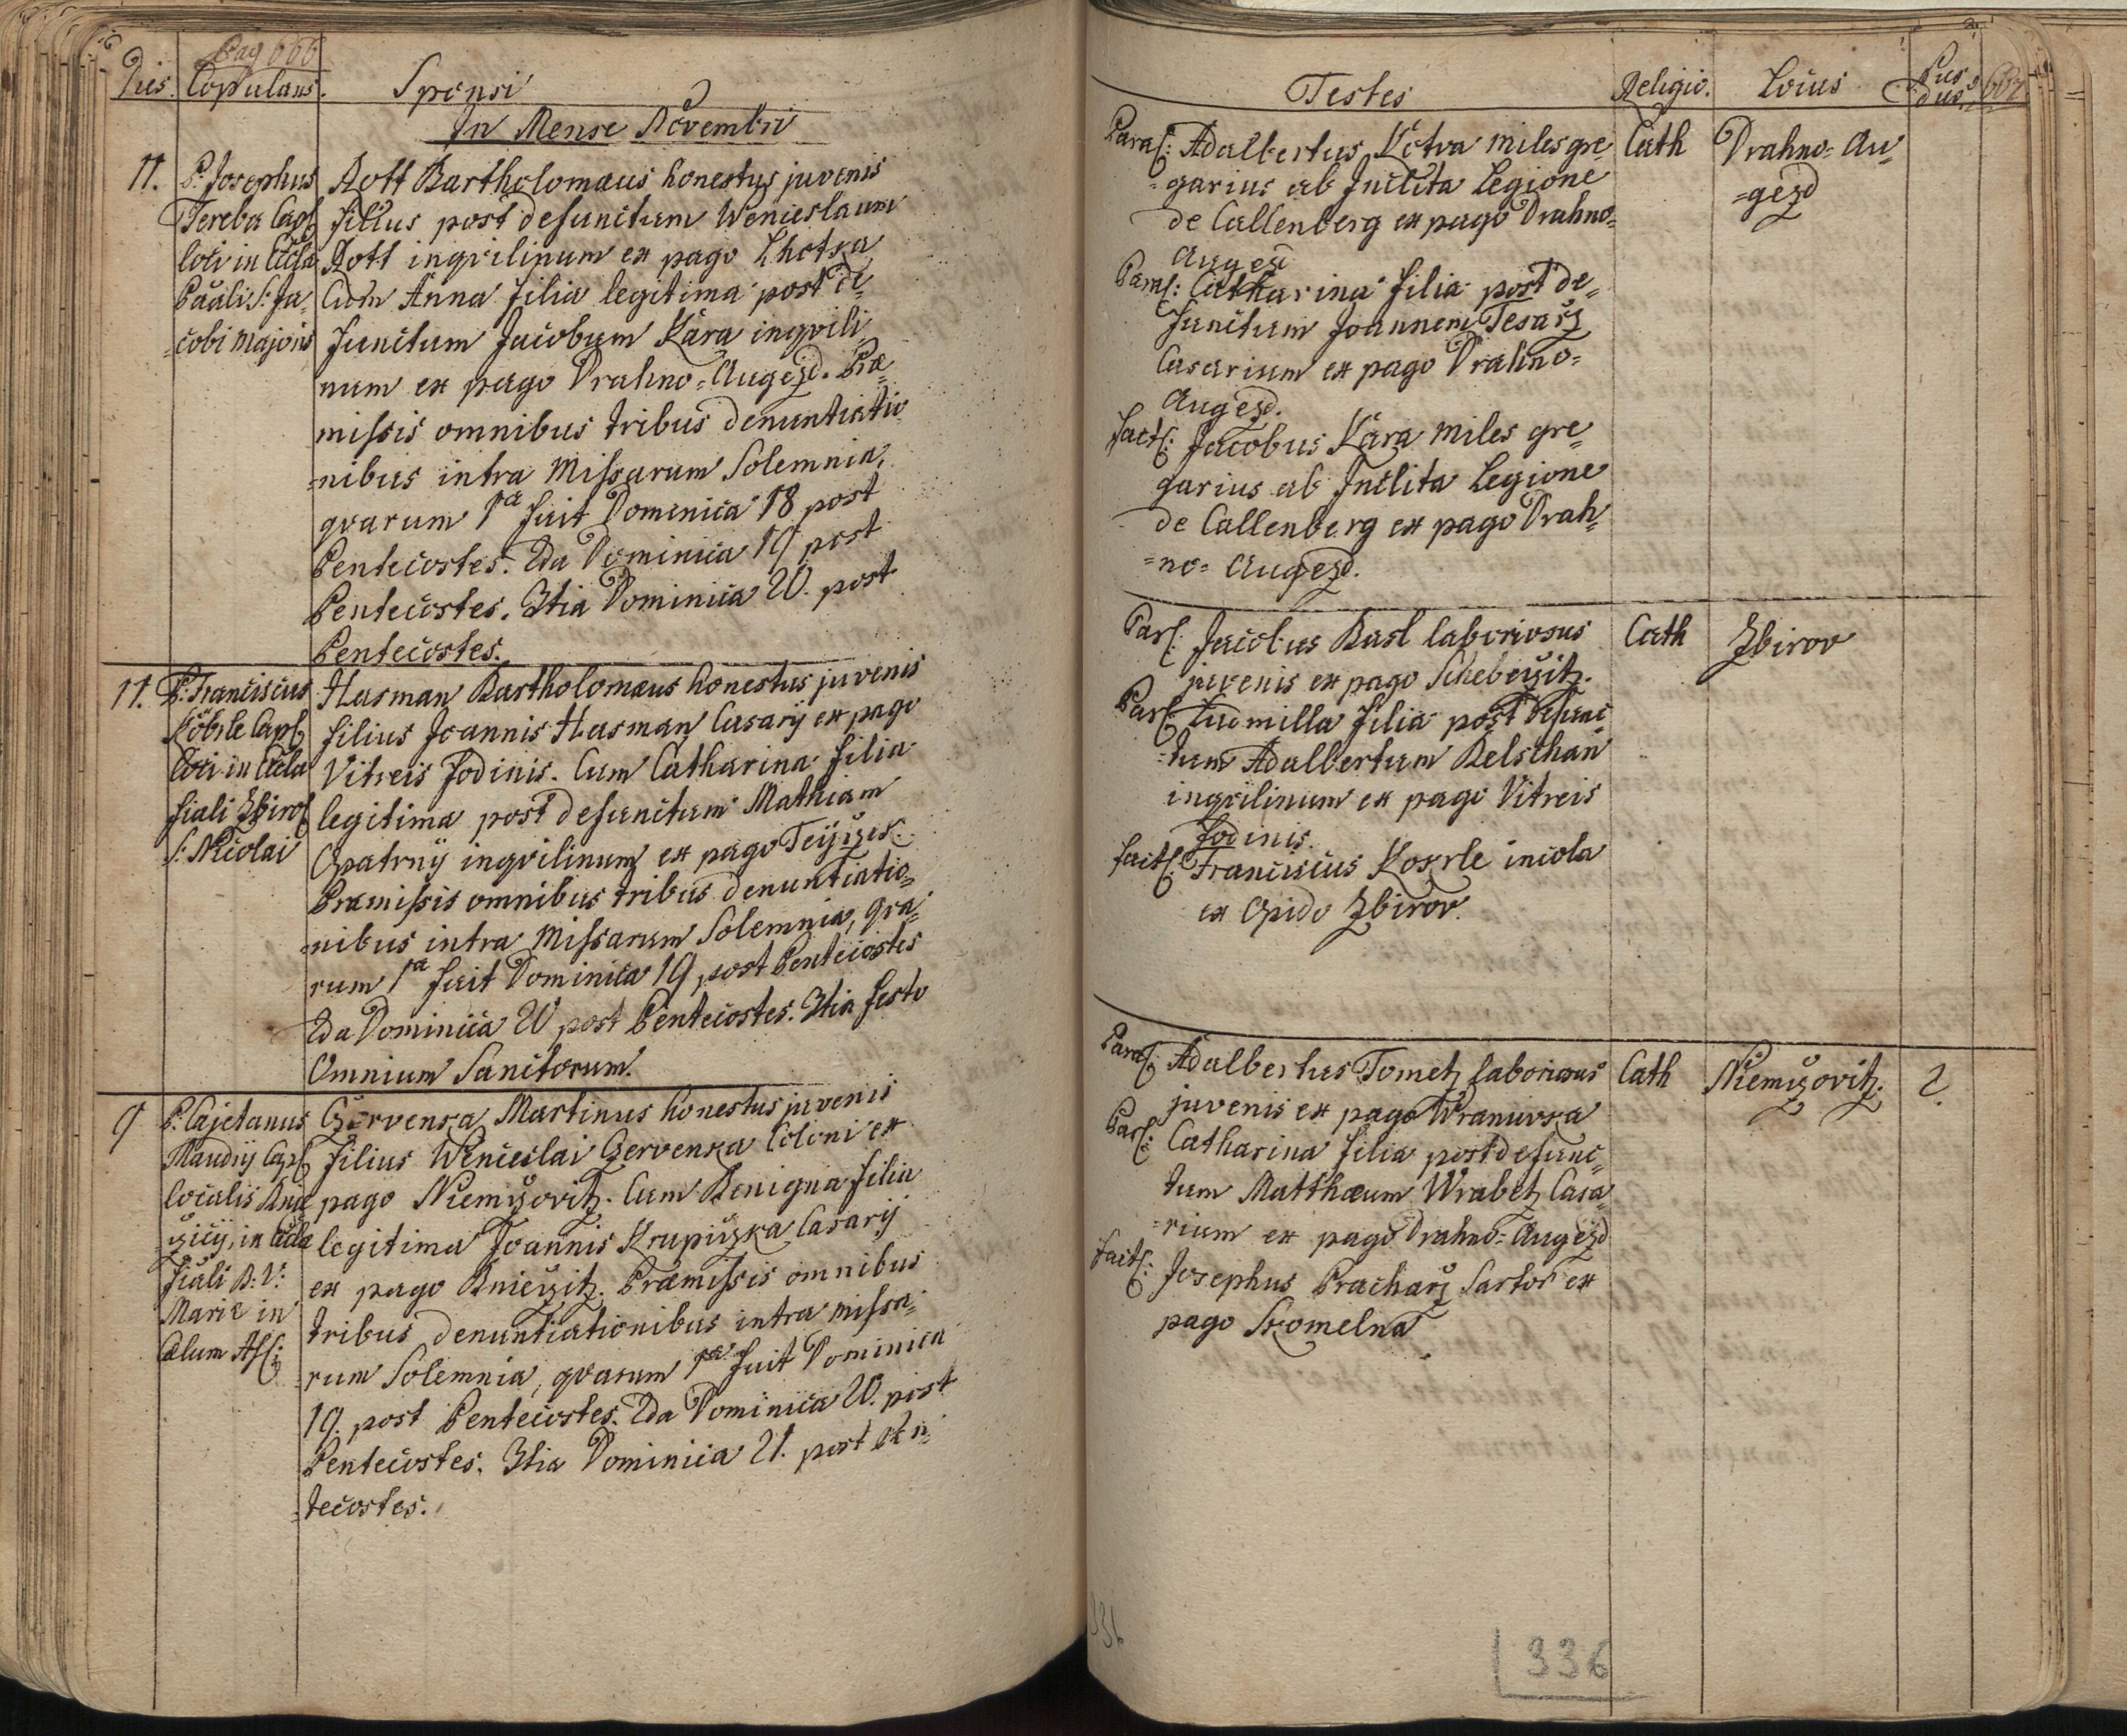 Pag 666
Dies. Copulans. Sponsi
In Mense Novembri
11.
P: Josephus
Tereba Capl
loci in Eccla
Paäli S: Ja-
cobi Majoris
Rott Bartholomæus honestus juvenis
filius post defunctum Wenceslaum
Rott inqvilinum ex pago Lhotka
Cum Anna filia legitima post de-
functum Jacobum Kara inqvili-
num ex pago Drahno-Augezd. Præ-
missis omnibus tribus denuntiatio-
nibus intra Missarum Solemnia,
qvarum 1a fuit Dominica 18 post
Pentecostes. 2da Dominica 19 post
Pentecostes. 3tia Dominica 20. post
Pentecostes.
11.
P: Franciscus
Köbrle Capl
loci in Eccla
fiali Zbirol
S: Nicolai
Hasman Bartholomæus honestus juvenis
filius Joannis Hasman Casarij ex pago
Vitreis Fodinis. Cum Catharina filia
legitima post defunctum Mathiam
Opatrnij inqvilinum ex pago Teijczek.
Præmissis omnibus tribus denuntiatio-
nibus intra Missarum Solemnia, qva-
rum 1a fuit Dominica 19 post Pentecostes
2da Dominica 20 post Pentecostes. 3tia festo
Omnium Sanctorum.
9
P: Cajetanus
Maudrij Capl
localis
in Eccla
fiali B: V:
Mariæ in
Cælum Ass:
Czervenka Martinus honestus juvenis
filius Wenceslai Czervenka Coloni ex
pago Niemczovitz. Cum Benigna filia
legitima Joannis Krupiczka Casarij
ex pago Knieczitz. Præmissis omnibus
tribus denuntiationibus intra missa-
rum Solemnia, qvarum 1a fuit Dominica
19. post Pentecostes. 2da Dominica 20. post
Pentecostes. 3tia Dominica 21. post Pen-
tecostes.
Testes Religio. Locus 667
Paral: Adalbertus Kotva miles gre-
garius ab Inclita Legione
de Callenberg ex pago Drahno-
Augezd
Paral: Catharina filia post de-
functum Joannem Tesarz
Casarium ex pago Drahno-
Augezd.
fact: Jacobus Kara miles gre-
garius ab Inclita Legione
de Callenberg ex pago Drah-
no-Augezd.
Cath
Drahno-Au-
gezd
Par: Jacobus Basl laboriosus
juvenis ex pago Scheberzitz.
Par: Ludmilla filia post defunc-
tum Adalbertum Belschan
inqvilinum ex pago Vitreis
Fodinis.
fact: Franciscus Kokrle incola
ex Opido Zbirov.
Cath
Zbirov
Paral: Adalbertus Tometz laboriosus
juvenis ex pago Wranovka
Par: Catharina filia post defunc-
tum Matthæum Wrabetz Casa-
rium ex pago Drahno-Augezd
fact: Josephus Pracharz Sartor ex
pago Skomelna
Cath
Niemczovitz.
2.
336
336